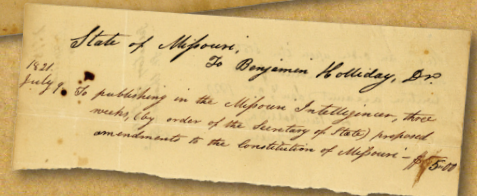 State of Missouri,
To Benjamin Holliday, Dr.
1821.
July 9. To publishing in the Missouri Intelligencer, three
weeks, (by order of the Secretary of State) proposed
amendments to the Constitution of Missouri - $ 5-00